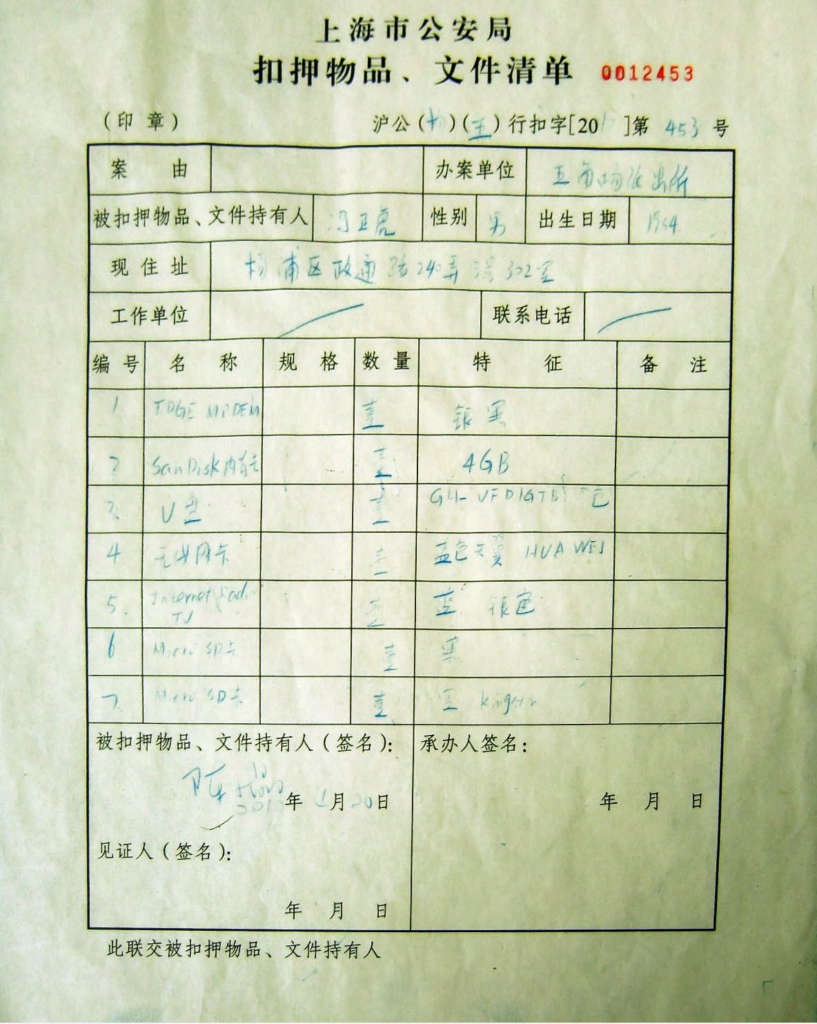 上海市公安局
扣押物品、文件清单 0012453
(印章) 沪公( )(五)行扣字[20 ]第 453 号
案 由 办案单位 五角场派出所
被扣押物品、文件持有人 冯正虎 性别 男 出生日期 1954
现住址 杨浦区政通路240弄 302室
工作单位 联系电话
编号 名 称 规 格 数量 特 征 备 注
1 EDGE MODEM 壹 银 黑
2 SanDisk内存卡 壹 4GB
3. U盘 壹
4 无线网卡 壹 蓝色天翼 HUAWEI
5. Internet Radio TV 壹 蓝 银色
6 Micro SD卡 壹 黑
7 Micro SD卡 壹 黑
被扣押物品、文件持有人(签名): 承办人签名:
陈 年 月 20 日 年 月 日
见证人(签名):
年 月 日
此联交被扣押物品、文件持有人